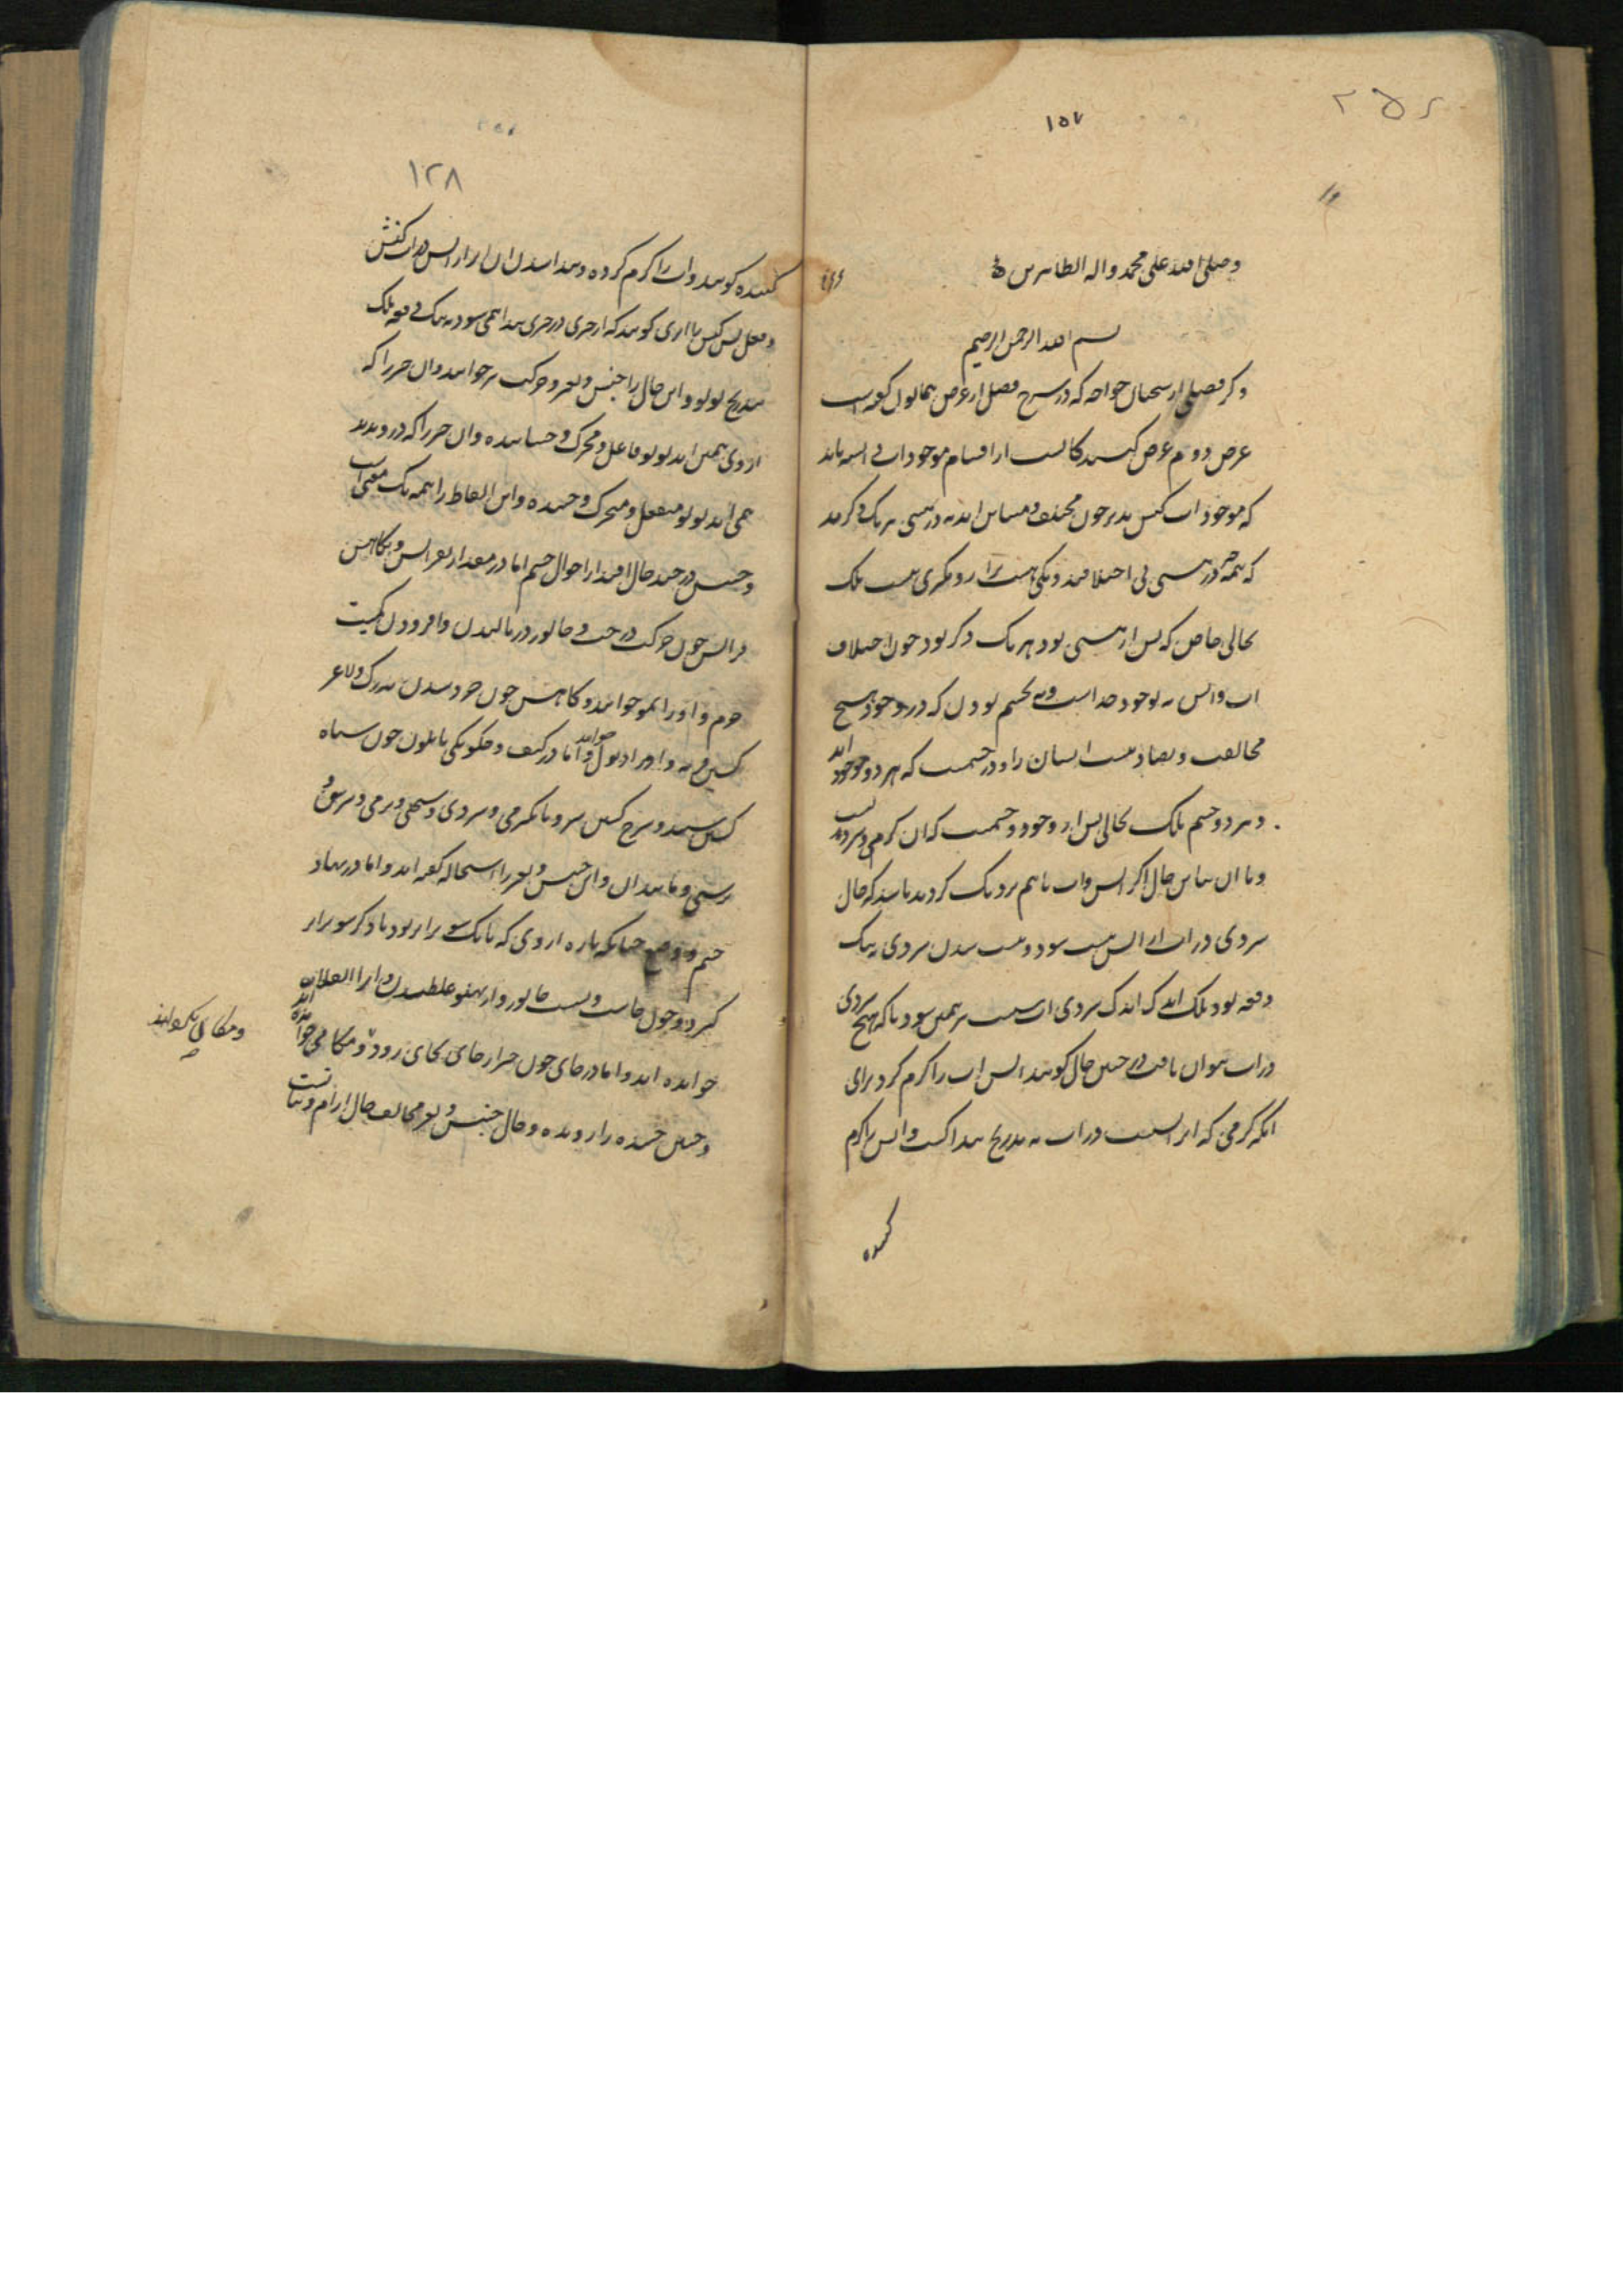 ۱۵۷
وصلی الله علی محمد واله الطاهرین
بسم الله الرحمن الرحیم
دکر فصلی از سخنان خواجه که در شرح فصل از عرض همایون گفته است
عرض دوم عرض کیست از اقسام موجودات
که موجودات کنش پذیر چون مختلف و متباین اند نه در هستی هر یک دگرند
که همه در هستی بی اختلافند و یکی هست تر از دیگری نیست بلک
بحالی خاص که پس از هستی بود هر یک دگر بود چون اختلاف
اب واتش نه بوجود جداست ونه بجسم بودن که در وجود هیچ
مخالفت و تضاد نیست ایشان را و در جسمیت که هر دو موجود اند
و هر دو جسم بلک بحالی پس از وجود و جسمیت که ان گرمی و سردیست
و با ان تباین حال اگر اتش واب با هم نزدیک گردند باشد که حال
سردی در اب از اتش نیست شود و نیست شدن سردی نه بیک
دفعه بود بلک اندک اندک سردی اب نیست همی شود تا که هیچ سردی
در اب نتوان یافت در چنین حال گویند اتش اب را گرم کرد برای
انکه گرمی که از اتش است در اب به تدریج پیدا گشت واتش را گرم
کننده
۱۲۸
کننده گویند واب را گرم کرده و پیدا شدن ان اثر از اتش در اب کنش
و فعل پس کنش اثری گویند که از چیزی در چیزی پیدا همی شود نه بیک دفعه بلک
بتدریج بود و این حال را جنبش و تغیر و حرکت نیز خوانند وان چیز را که
از وی همی اید بود فاعل و محرک و جنباننده وان چیز را که درو پدید
همی اید بود منفعل و متحرک و جنبنده واین الفاظ را همه یک معنی است
و جنبش در چند حال افتد از احوال جسم اما در مقدار بفزایش و بکاهش
فزایش چون حرکت درخت و جانور در بالیدن وافزودن کمیت
جرم و او را نمو خوانند و کاهش چون خرد شدن بزرگ ولاغر
گشتن فربه و او را ذبول خوانند واما در کیف و چگونگی یا بلون چون سیاه
گشتن سپید و سرخ گشتن سبز و یا بگرمی و سردی و سختی و نرمی و ترشی و
ترشی و مانند ان واین جنبش و تغیر را استحاله گفته اند واما در نهاد
جسم و وضع چنانکه پاره از وی که با یک سو برابر بود با دگر سو برابر
گردد چون خاست و نشست جانور واز پهلو غلطیدن وانرا انقلاب
خوانده اند واما در جای چون چیز از جای بجای رود و مکانی خوانده اند
و جنبش جنبنده را رونده و حال جنبش و تغیر مخالف حال ارام و ثباتست